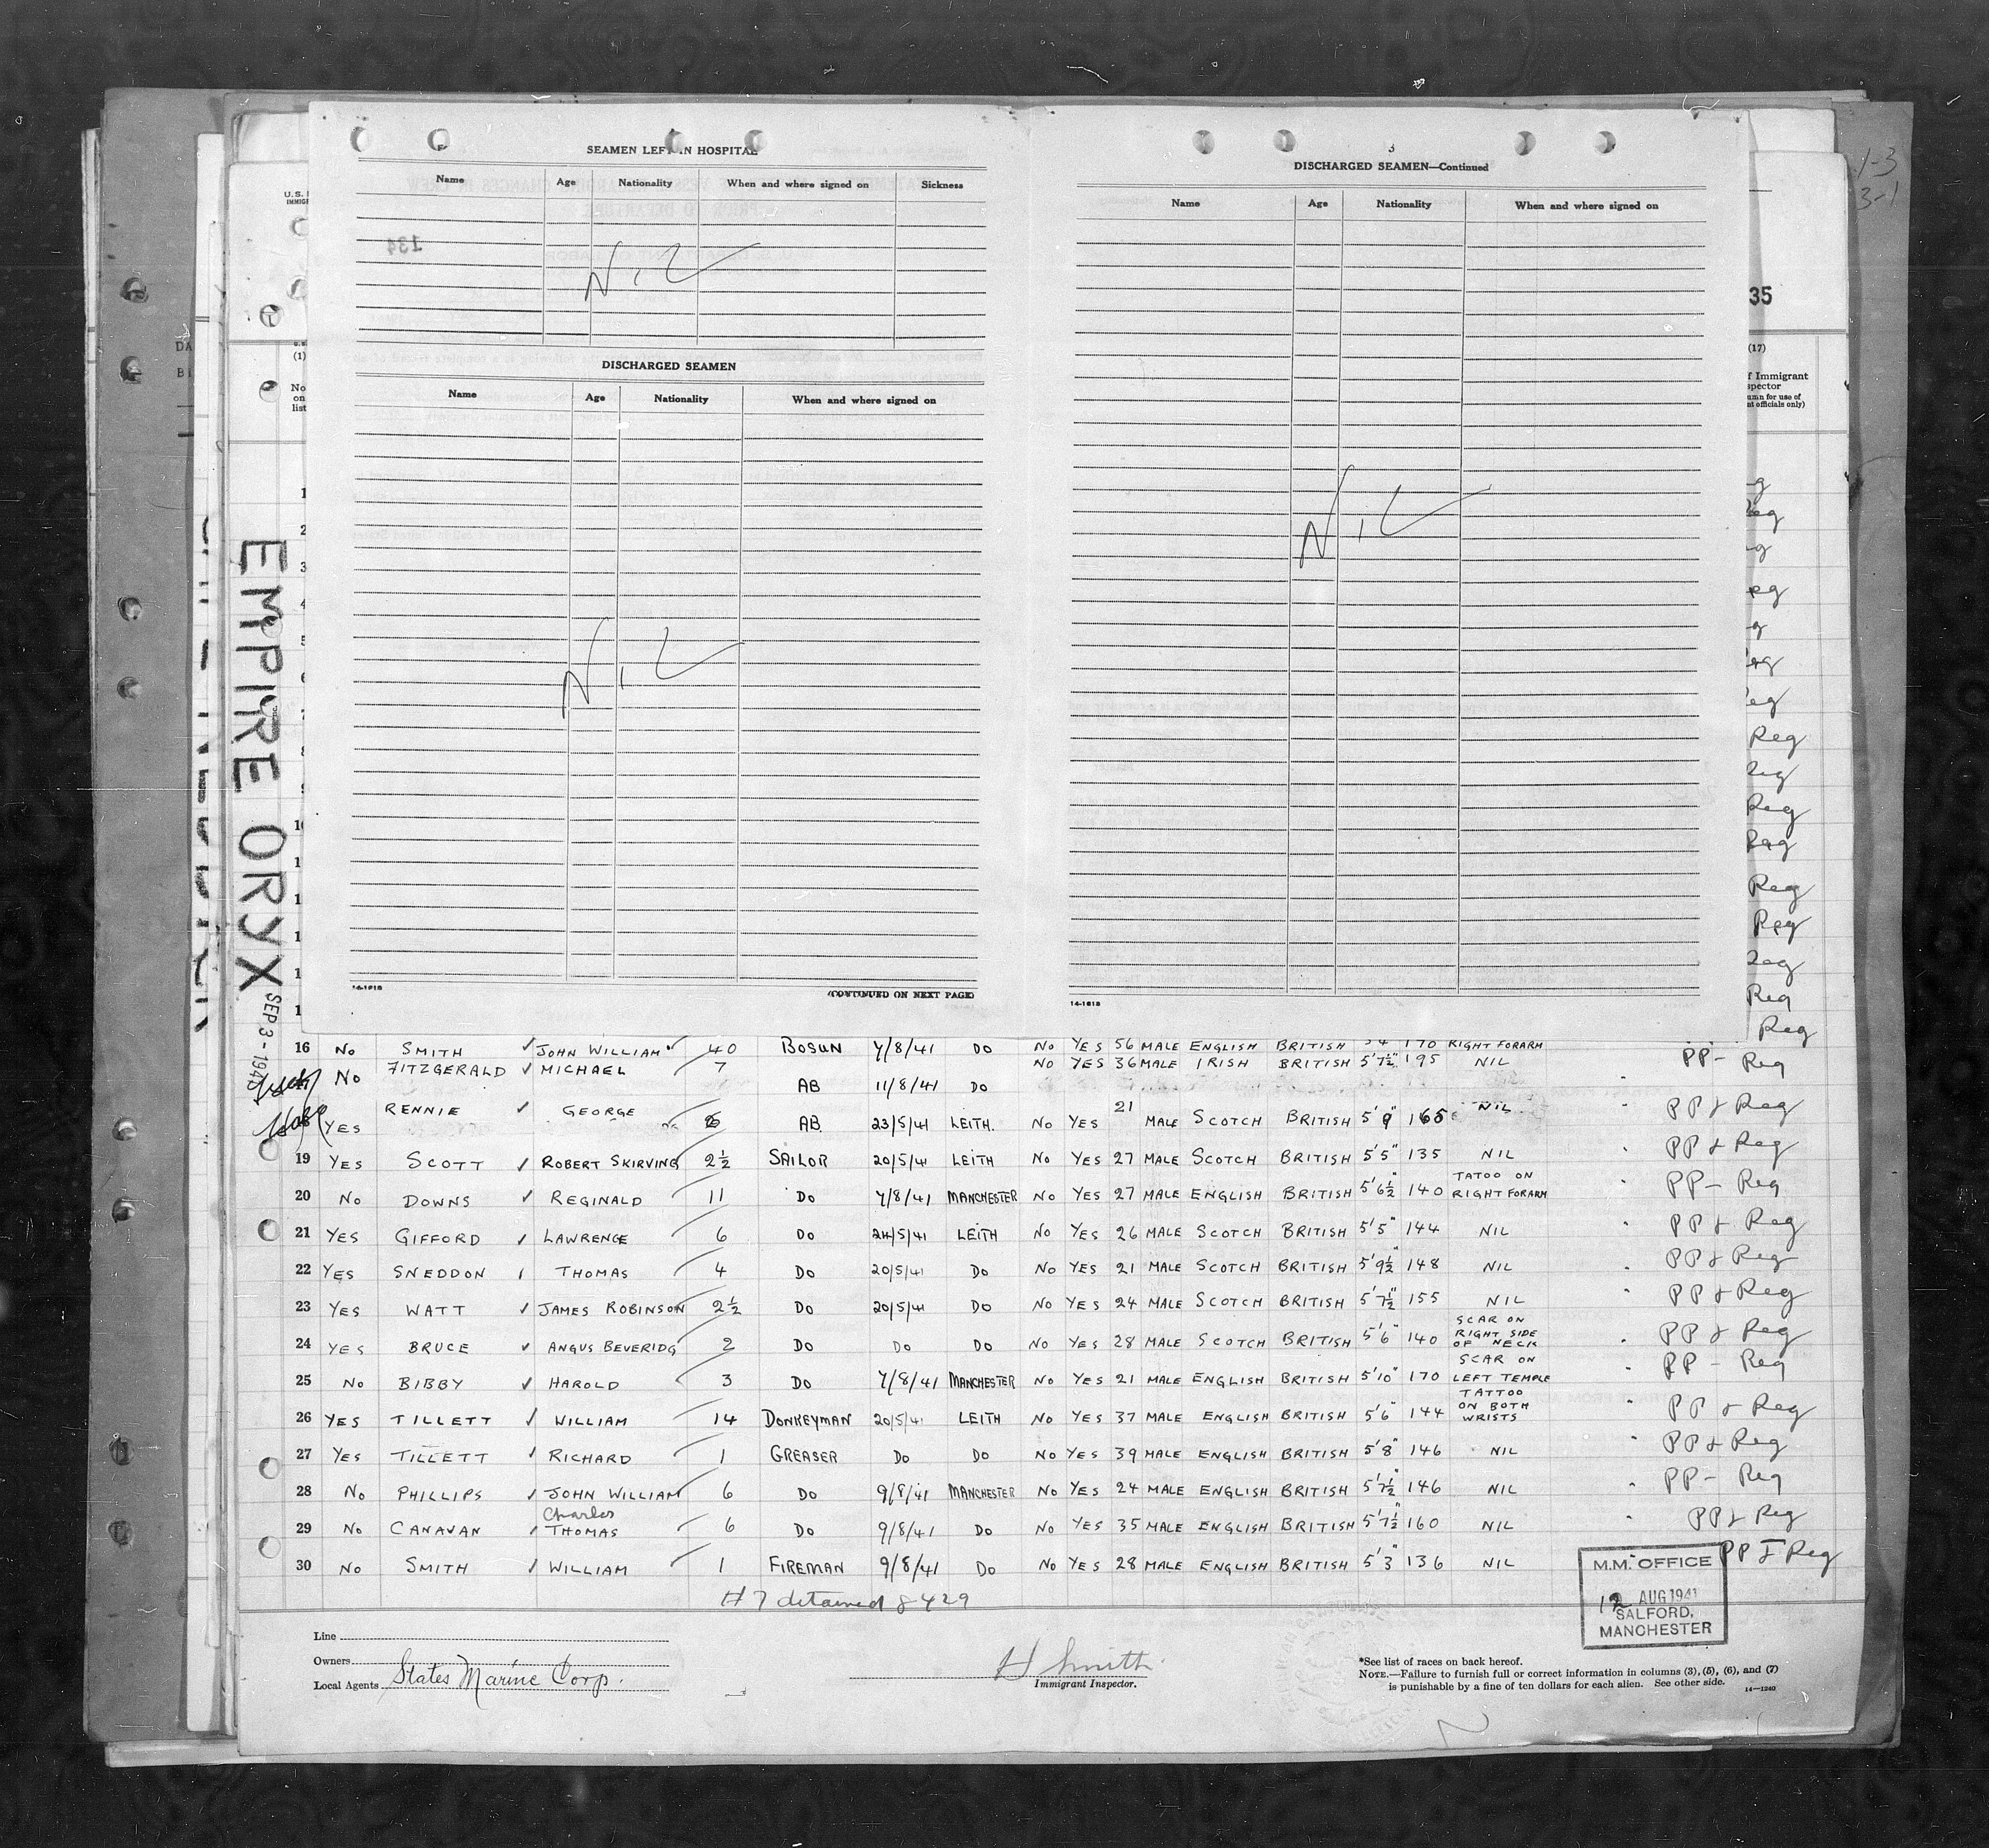 SEAMEN LEFT IN HOSPITAL
Name Age Nationality When and where signed on Sickness
134
Nil
DISCHARGED SEAMEN
Name Age Nationality When and where signed on
Nil
14-1618 (CONTINUED ON NEXT PAGE)
3
DISCHARGED SEAMEN—Continued
Name Age Nationality When and where signed on
Nil
14-1618
1-3
3-1
35
U.S.
(1)
No
on
list
(17)
f Immigrant
spector
umn for use of
nt officials only)
EMPIRE ORYX
SEP 3 - 194
Reg
Reg
Reg
Reg
Reg
Reg
Reg
16 No SMITH ✓ JOHN WILLIAM 40 BOSUN 7/8/41 DO NO YES 56 MALE ENGLISH BRITISH 170 RIGHT FORARM
No FITZGERALD ✓ MICHAEL 7 AB 11/8/41 DO NO YES 36 MALE IRISH BRITISH 5'7½" 195 NIL PP- Reg
YES RENNIE ✓ GEORGE 6 AB 23/5/41 LEITH. NO YES 21 MALE SCOTCH BRITISH 5'9 165 NIL PP & Reg
19 YES SCOTT ✓ ROBERT SKIRVING 2½ SAILOR 20/5/41 LEITH NO YES 27 MALE SCOTCH BRITISH 5'5" 135 NIL PP & Reg
20 NO DOWNS ✓ REGINALD 11 DO 7/8/41 MANCHESTER NO YES 27 MALE ENGLISH BRITISH 5'6½" 140 TATOO ON RIGHT FORARM PP - Reg
21 YES GIFFORD ✓ LAWRENCE 6 DO 24/5/41 LEITH NO YES 26 MALE SCOTCH BRITISH 5'5" 144 NIL PP & Reg
22 YES SNEDDON ✓ THOMAS 4 DO 20/5/41 DO NO YES 21 MALE SCOTCH BRITISH 5'9½" 148 NIL PP & Reg
23 YES WATT ✓ JAMES ROBINSON 2½ DO 20/5/41 DO NO YES 24 MALE SCOTCH BRITISH 5'7½" 155 NIL PP & Reg
24 YES BRUCE ✓ ANGUS BEVERIDG 2 DO DO DO NO YES 28 MALE SCOTCH BRITISH 5'6" 140 SCAR ON RIGHT SIDE OF NECK PP & Reg
25 NO BIBBY ✓ HAROLD 3 DO 7/8/41 MANCHESTER NO YES 21 MALE ENGLISH BRITISH 5'10" 170 SCAR ON LEFT TEMPLE PP - Reg
26 YES TILLETT ✓ WILLIAM 14 DONKEYMAN 20/5/41 LEITH NO YES 37 MALE ENGLISH BRITISH 5'6" 144 TATTOO ON BOTH WRISTS PP & Reg
27 YES TILLETT ✓ RICHARD 1 GREASER DO DO NO YES 39 MALE ENGLISH BRITISH 5'8" 146 NIL PP & Reg
28 NO PHILLIPS ✓ JOHN WILLIAM 6 DO 9/8/41 MANCHESTER NO YES 24 MALE ENGLISH BRITISH 5'7½" 146 NIL PP - Reg
29 NO CANAVAN ✓ Charles THOMAS 6 DO 9/8/41 DO NO YES 35 MALE ENGLISH BRITISH 5'7½" 160 NIL PP & Reg
30 NO SMITH ✓ WILLIAM 1 FIREMAN 9/8/41 DO NO YES 28 MALE ENGLISH BRITISH 5'3" 136 NIL PP & Reg
# 7 detained 8429
M.M. OFFICE
12 AUG 1941
SALFORD,
MANCHESTER
Line
Owners
Local Agents States Marine Corp.
H Smith
Immigrant Inspector.
*See list of races on back hereof.
NOTE.—Failure to furnish full or correct information in columns (3), (5), (6), and (7)
is punishable by a fine of ten dollars for each alien. See other side. 14—1240